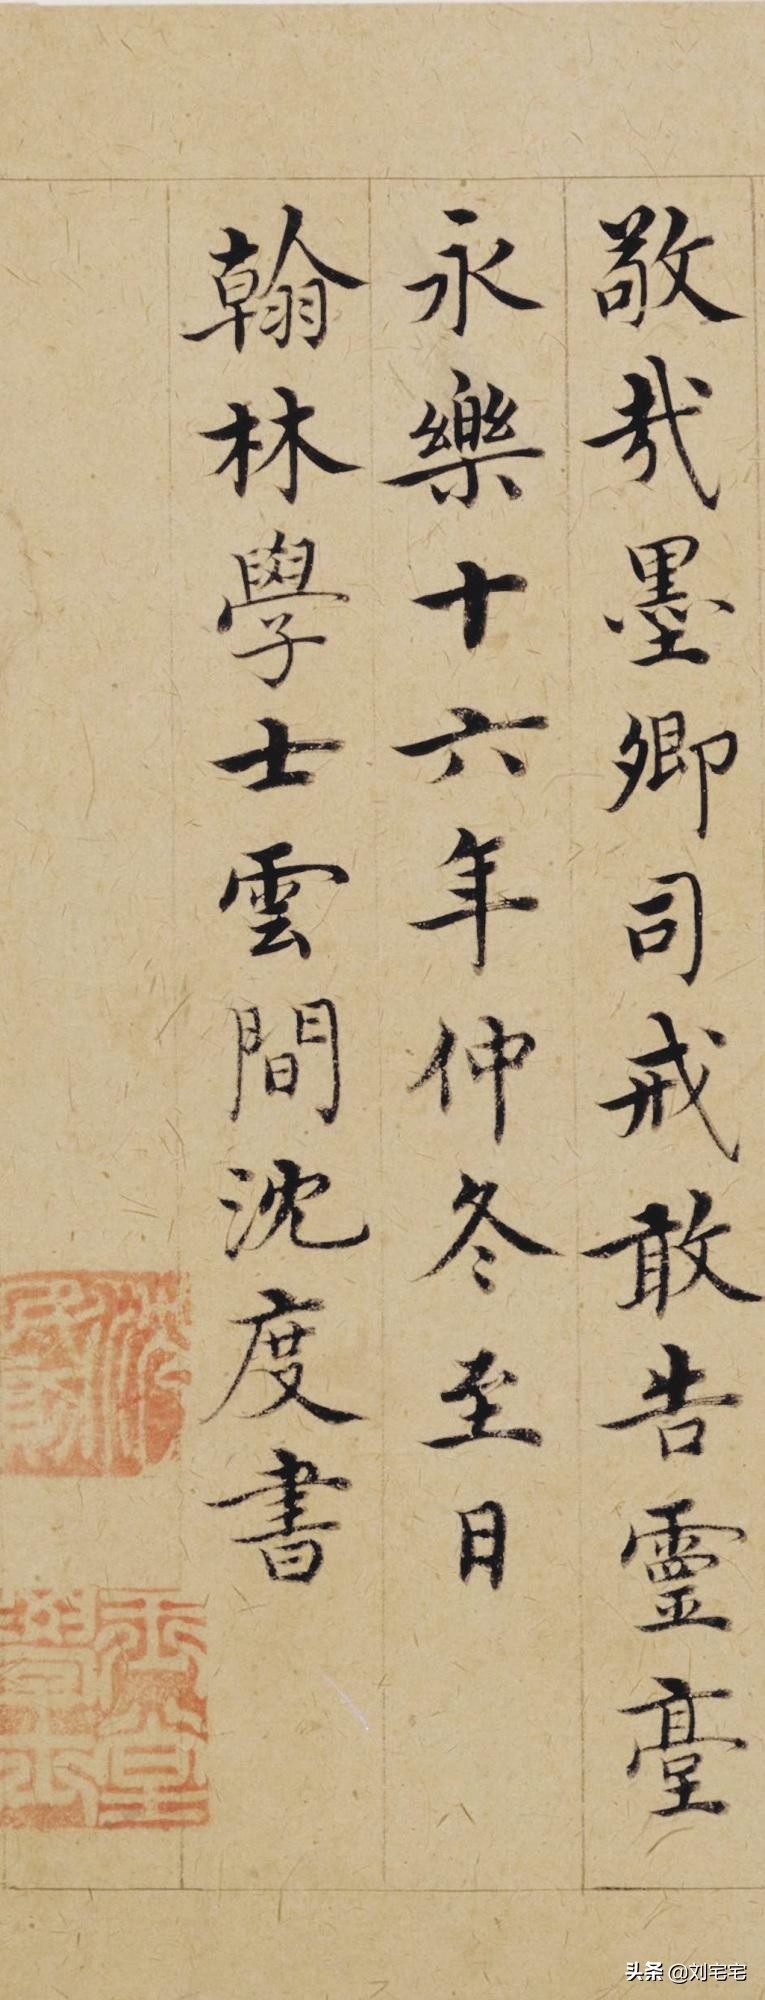 敬哉墨卿司戒敢告靈臺
永樂十六年仲冬至日
翰林學士雲間沈度書
头条 @刘宅宅